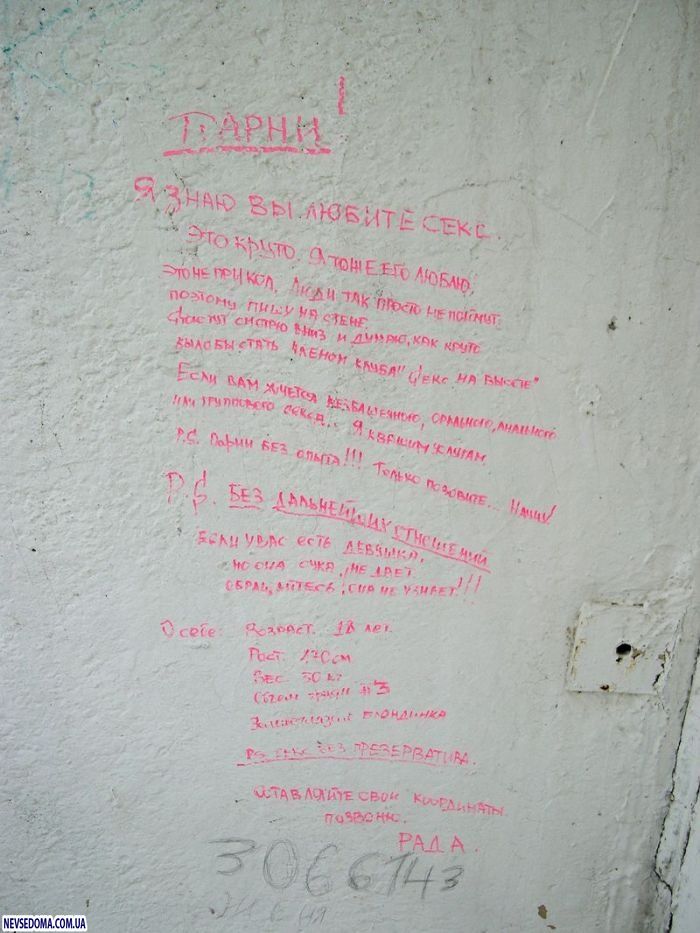 ПАРНИ!
Я ЗНАЮ ВЫ ЛЮБИТЕ СЕКС.
ЭТО КРУТО. Я ТОЖЕ ЕГО ЛЮБЛЮ,
ЭТО НЕ ПРИКОЛ, ЛЮДИ ТАК ПРОСТО НЕ ПОЙМУТ.
ПОЭТОМУ ПИШУ НА СТЕНЕ.
СМОТРЮ ВНИЗ И ДУМАЮ, КАК КРУТО
БЫЛО БЫ СТАТЬ ЧЛЕНОМ КЛУБА "СЕКС НА ВЫСОТЕ"
ЕСЛИ ВАМ ХОЧЕТСЯ БЕЗБАШЕННОГО, ОРАЛЬНОГО, АНАЛЬНОГО
ИЛИ ГРУППОВОГО СЕКСА... Я К ВАШИМ УСЛУГАМ
P.S. ПАРНИ БЕЗ ОПЫТА!!! ТОЛЬКО ПОЗОВИТЕ...
P.S. БЕЗ ДАЛЬНЕЙШИХ ОТНОШЕНИЙ
ЕСЛИ У ВАС ЕСТЬ ДЕВУШКА,
НО ОНА СУКА, НЕ ДАЕТ.
ОБРАЩАЙТЕСЬ, ОНА НЕ УЗНАЕТ!!!
О себе: Возраст. 18 лет.
Рост. 170 см
ВЕС. 50 кг
Объем груди #3
Зеленоглазая БЛОНДИНКА
P.S СЕКС БЕЗ ПРЕЗЕРВАТИВА.
ОСТАВЛЯЙТЕ СВОИ КООРДИНАТЫ.
ПОЗВОНЮ.
РАДА.
3066143
NEVSEDOMA.COM.UA